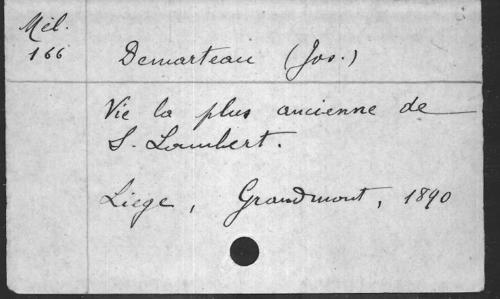 Mél.
166
Demarteau (Jos.)
Vie la plus ancienne de
S. Lambert.
Liège, Grandmont, 1890